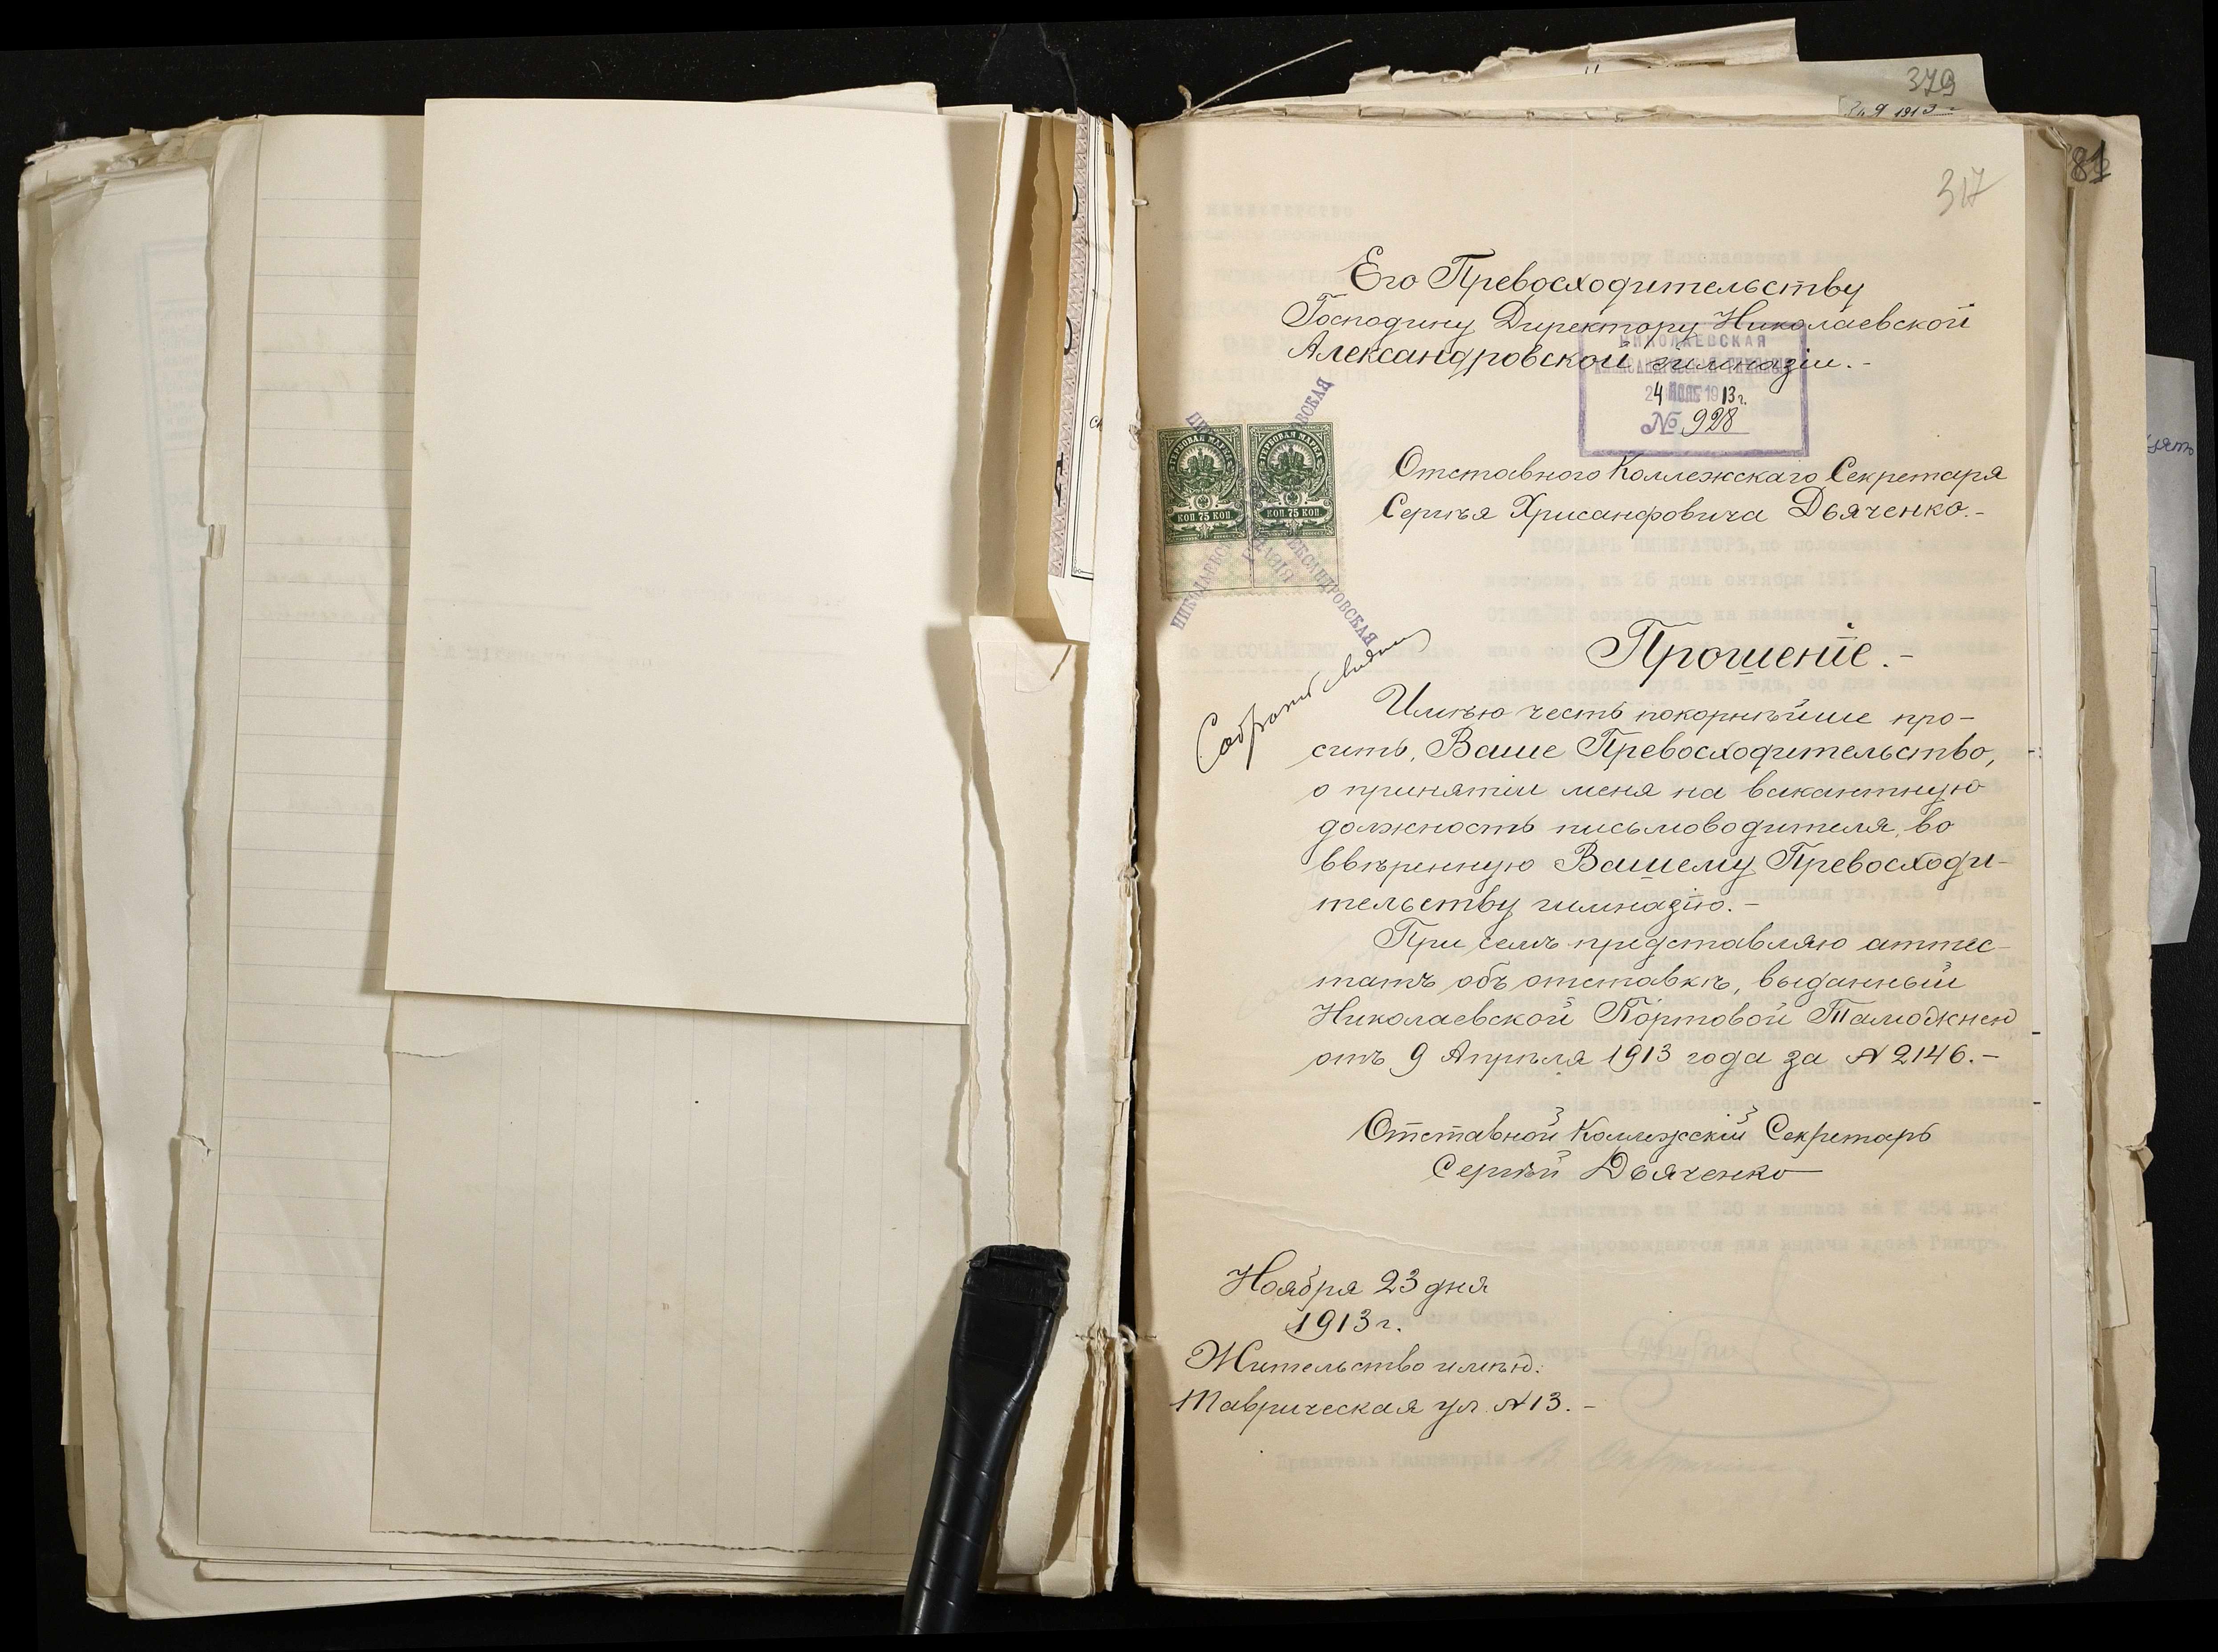 379
317
81
Его Превосходительству
Господину Директору Николаевской
Александровской гимназіи.-
НИКОЛАЕВСКАЯ
АЛЕКСАНДРОВСКАЯ ГИМНАЗІЯ
24 НОЯБ 1913 г.
№ 928
ГЕРБОВАЯ МАРКА ГЕРБОВАЯ МАРКА
КОП. 75 КОП. КОП. 75 КОП.
НИКОЛАЕВСКАЯ АЛЕКСАНДРОВСКАЯ
Отставного Коллежскаго Секретаря
Сергѣя Хрисанфовича Дьяченко.-
Прошеніе.-
Собрать
Имѣю честь покорнѣйше про-
сить, Ваше Превосходительство,
о принятіи меня на вакантную
должность письмоводителя, во
ввѣренную Вашему Превосходи-
тельству гимназію.-
При семъ представляю аттес-
татъ объ отставкѣ, выданный
Николаевской Портовой Таможней
отъ 9 Апрѣля 1913 года за № 2146.-
Отставной Коллежскій Секретарь
Сергѣй Дьяченко
Ноября 23 дня
1913 г.
Жительство имѣю:
Таврическая ул. № 13.-